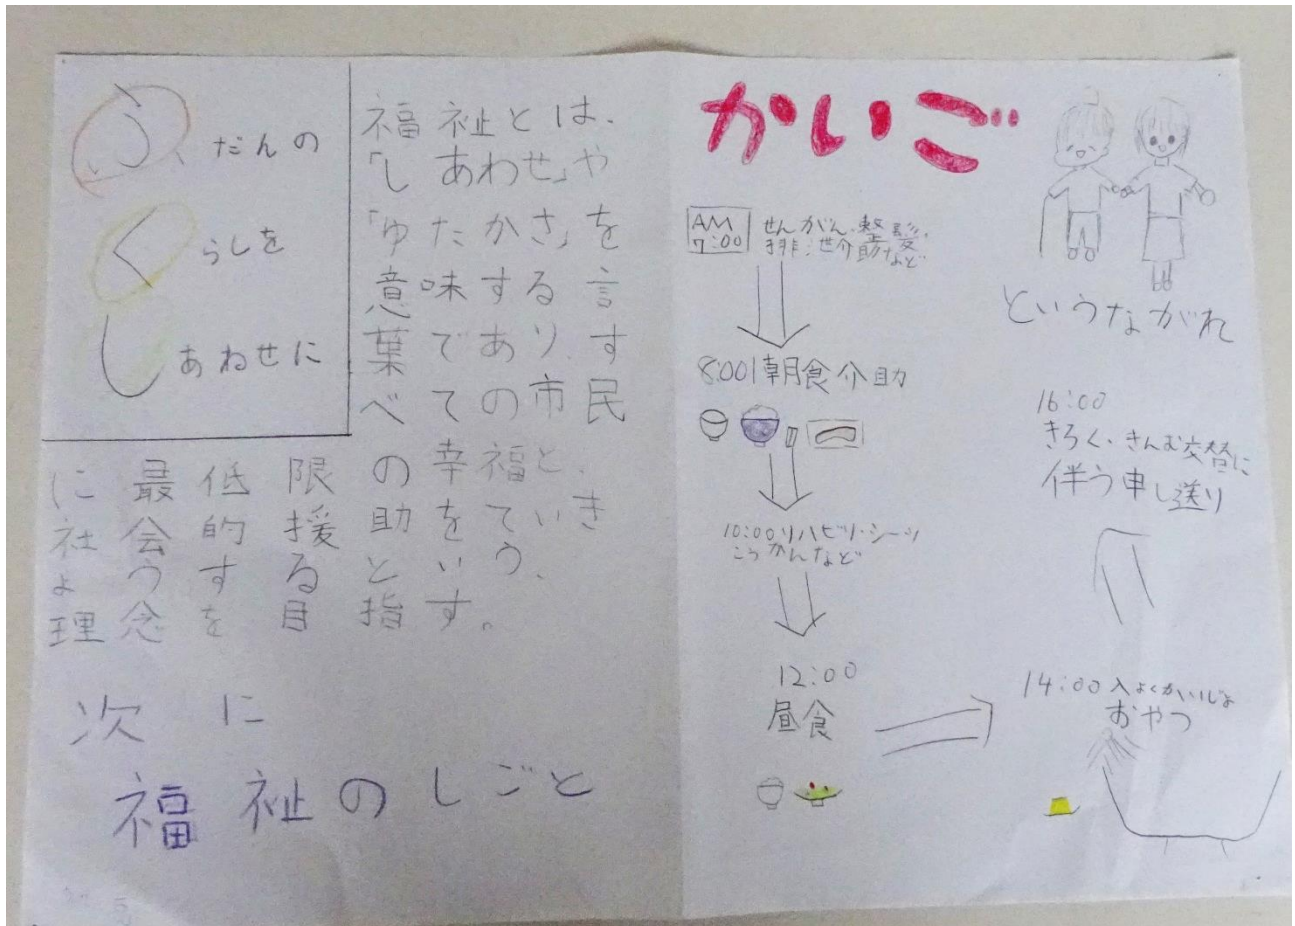 ふだんの
くらしを
しあわせに
福祉とは、
「しあわせ」や
「ゆたかさ」を
意味する言
葉であり、す
べての市民
に最低限の幸福と、
社会的援助をていき
ょうするという、
理念を目指す。
次に
福祉のしごと
かいご
AM
7:00
せんがん、整髪、
排泄介助など
8:00 朝食介助
10:00 リハビリ・シーツ
こうかんなど
12:00
昼食
14:00 入よくかいじょ
おやつ
16:00
きろく、きんむ交替に
伴う申し送り
というながれ